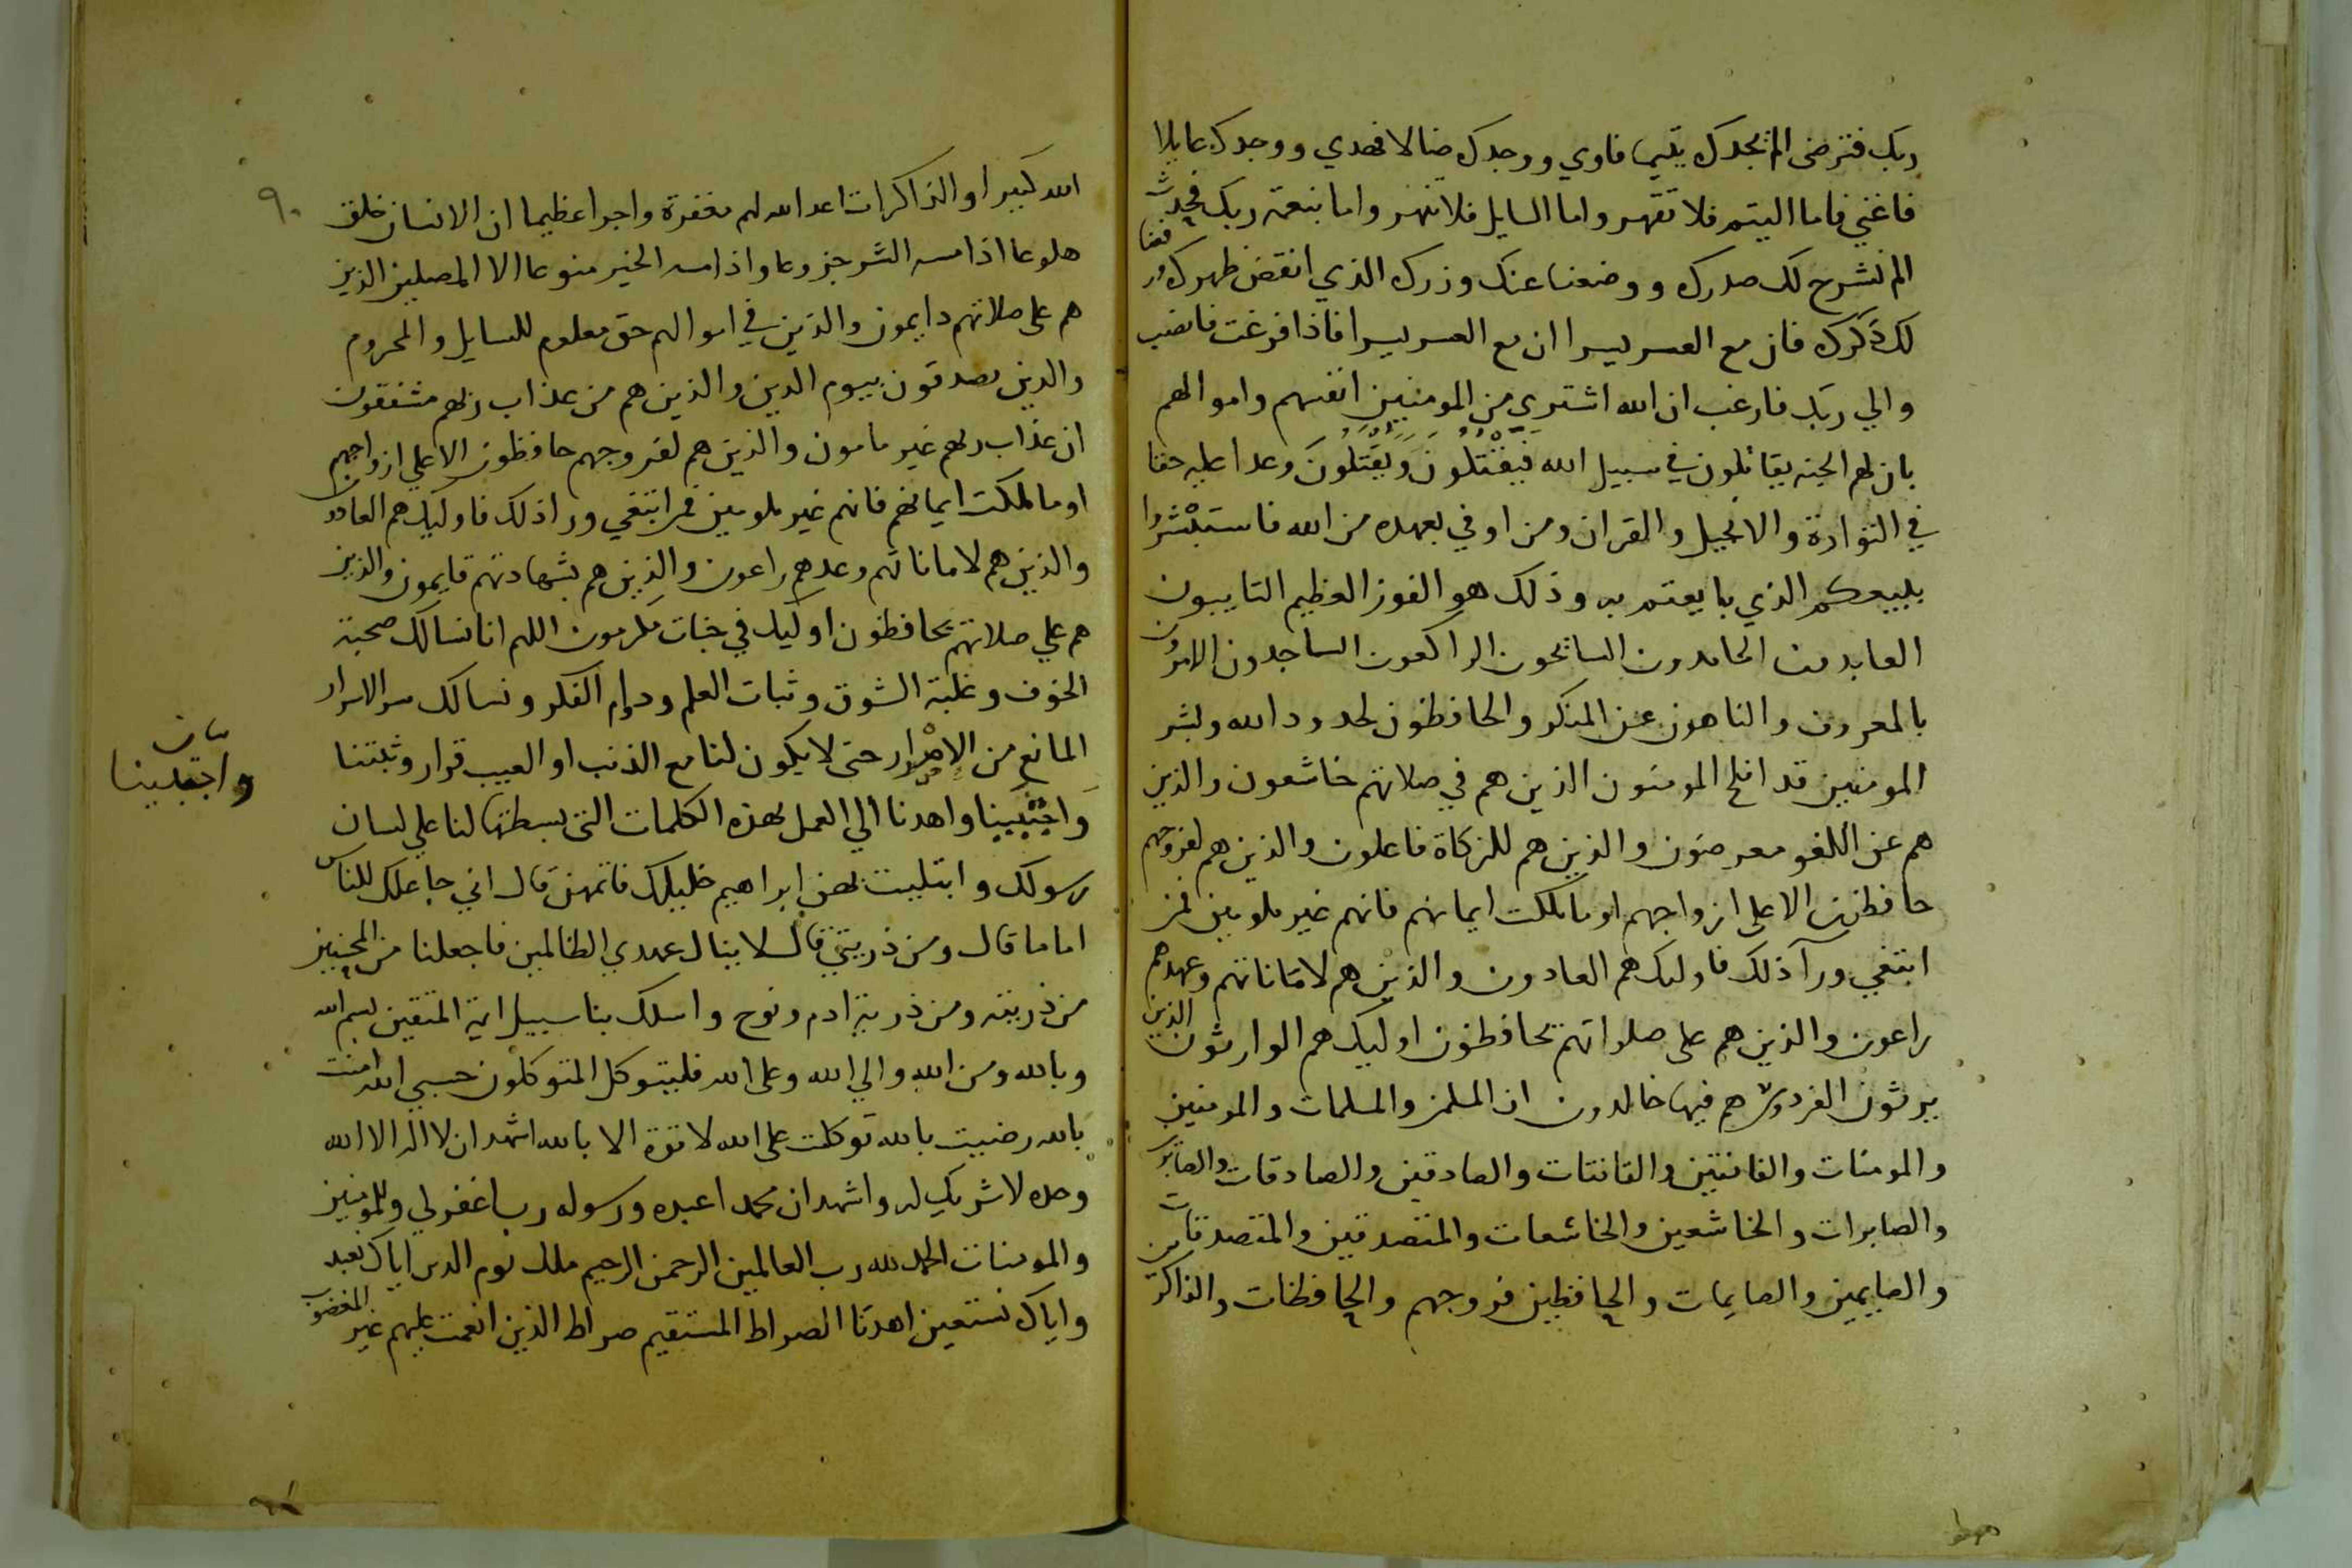 ربك فترضى الم يجدك يتيما فاوي ووجدك ضالا فهدي ووجدك عايلا
فاغني فاما اليتيم فلا تقهر واما السايل فلا تنهر واما بنعمة ربك فحدث
الم نشرح لك صدرك ووضعنا عنك وزرك الذي انقض ظهرك ورفعنا
لك ذكرك فان مع العسر يسرا ان مع العسر يسرا فاذا فرغت فانصب
والي ربك فارغب ان الله اشتري من المومنين انفسهم واموالهم
بان لهم الجنه يقاتلون في سبيل الله فَيَقْتُلُونَ وَيُقْتَلُونَ وعدا عليه حقا
في التوراة والانجيل والقران ومن اوفي بعهده من الله فاستَبْشرُوا
ببيعكم الذي بايعتم به وذلك هو الفوز العظيم التايبون
العابدون الحامدون السائحون الراكعون الساجدون الامرون
بالمعروف والناهون عن المنكر والحافظون لحدود الله وبشر
المومنين قد افلح المومنون الذين هم في صلاتهم خاشعون والذين
هم عن اللغو معرضون والذين هم للزكاة فاعلون والذين هم لفروجهم
حافظون الا على ازواجهم او ما ملكت ايمانهم فانهم غير ملومين فمن
ابتغي ورآ ذلك فاوليك هم العادون والذين هم لاماناتهم وعهدهم
راعون والذين هم على صلواتهم يحافظون اوليك هم الوارثون الذين
يرثون الفردوس هم فيها خالدون ان المسلمين والمسلمات والمومنين
والمومنات والقانتين والقانتات والصادقين والصادقات والصابرين
والصابرات والخاشعين والخاشعات والمتصدقين والمتصدقات
والصايمين والصايمات والحافظين فروجهم والحافظات والذاكرين
٩٠
الله كبيرا والذاكرات اعد الله لهم مغفرة واجرا عظيما ان الانسان خلق
هلوعا اذا مسه الشر جزوعا واذا مسه الخير منوعا الا المصلين الذين
هم على صلاتهم دايمون والذين في اموالهم حق معلوم للسايل والمحروم
والذين يصدقون بيوم الدين والذين هم من عذاب ربهم مشفقون
ان عذاب ربهم غير مامون والذين هم لفروجهم حافظون الا علي ازواجهم
او ما ملكت ايمانهم فانهم غير ملومين فمن ابتغي ورا ذلك فاوليك هم العادون
والذين هم لاماناتهم وعهدهم راعون والذين هم بشهادتهم قايمون والذين
هم علي صلاتهم يحافظون اوليك في جنات مكرمون اللهم انا نسالك صحبة
الخوف وغلبة الشوق وثبات العلم ودوام الفكر ونسالك سر الاسرار
المانع من الاصرار حتى لا يكون لنا مع الذنب او العيب قرار وثبتنا
وَاجْتَبِينا واهدنا الي العمل بهذه الكلمات التي بسطتها لنا علي لسان
رسولك وابتليت بهن ابراهيم خليلك فاتمهن قال اني جاعلك للناس
اماما قال ومن ذريتي قال لا ينال عهدي الظالمين فاجعلنا من المحسنين
من ذريته ومن ذرية ادم ونوح واسلك بنا سبيل ايمة المتقين بسم الله
وبالله ومن الله والي الله وعلى الله فليتوكل المتوكلون حسبي الله امنت
بالله رضيت بالله توكلت على الله لا قوة الا بالله اشهد ان لا اله الا الله
وحده لا شريك له واشهد ان محمدا عبده ورسوله رب اغفر لي وللمومنين
والمومنات الحمد لله رب العالمين الرحمن الرحيم ملك يوم الدين اياك نعبد
واياك نستعين اهدنا الصراط المستقيم صراط الذين انعمت عليهم غير المغضوب
بيان
واجتبينا